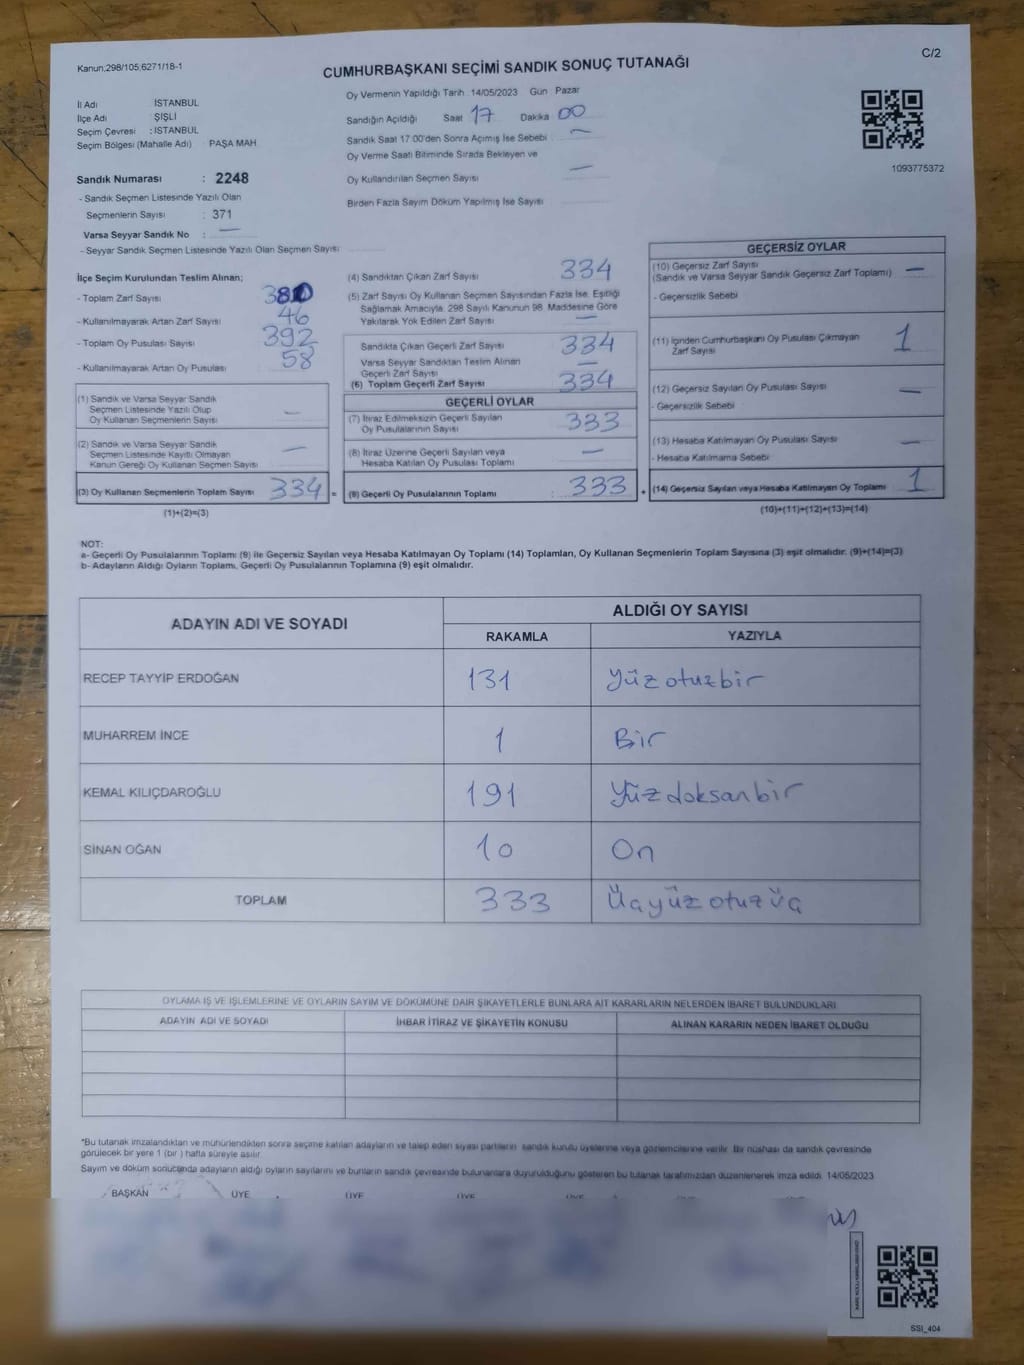 Kanun;298/105;6271/18-1
C/2
CUMHURBAŞKANI SEÇİMİ SANDIK SONUÇ TUTANAĞI
İl Adı İSTANBUL
İlçe Adı ŞİŞLİ
Seçim Çevresi : İSTANBUL
Seçim Bölgesi (Mahalle Adı) PAŞA MAH.
Sandık Numarası : 2248
- Sandık Seçmen Listesinde Yazılı Olan
Seçmenlerin Sayısı : 371
Varsa Seyyar Sandık No : —
- Seyyar Sandık Seçmen Listesinde Yazılı Olan Seçmen Sayısı:
Oy Vermenin Yapıldığı Tarih :14/05/2023 Gün : Pazar
Sandığın Açıldığı Saat 17 Dakika 00
Sandık Saat 17.00'den Sonra Açılmış İse Sebebi : —
Oy Verme Saati Bitiminde Sırada Bekleyen ve
Oy Kullandırılan Seçmen Sayısı —
Birden Fazla Sayım Döküm Yapılmış İse Sayısı
1093775372
İlçe Seçim Kurulundan Teslim Alınan;
- Toplam Zarf Sayısı 380
- Kullanılmayarak Artan Zarf Sayısı : 46
- Toplam Oy Pusulası Sayısı : 392
- Kullanılmayarak Artan Oy Pusulası : 58
(1) Sandık ve Varsa Seyyar Sandık
Seçmen Listesinde Yazılı Olup
Oy Kullanan Seçmenlerin Sayısı : —
(2) Sandık ve Varsa Seyyar Sandık
Seçmen Listesinde Kayıtlı Olmayan
Kanun Gereği Oy Kullanan Seçmen Sayısı : —
(3) Oy Kullanan Seçmenlerin Toplam Sayısı : 334 =
(1)+(2)=(3)
(4) Sandıktan Çıkan Zarf Sayısı 334
(5) Zarf Sayısı Oy Kullanan Seçmen Sayısından Fazla İse, Eşitliği
Sağlamak Amacıyla, 298 Sayılı Kanunun 98. Maddesine Göre
Yakılarak Yok Edilen Zarf Sayısı —
Sandıkta Çıkan Geçerli Zarf Sayısı 334
Varsa Seyyar Sandıktan Teslim Alınan
Geçerli Zarf Sayısı —
(6) Toplam Geçerli Zarf Sayısı 334
GEÇERLİ OYLAR
(7) İtiraz Edilmeksizin Geçerli Sayılan
Oy Pusulalarının Sayısı 333
(8) İtiraz Üzerine Geçerli Sayılan veya
Hesaba Katılan Oy Pusulası Toplamı —
(9) Geçerli Oy Pusulalarının Toplamı : 333 +
GEÇERSİZ OYLAR
(10) Geçersiz Zarf Sayısı
(Sandık ve Varsa Seyyar Sandık Geçersiz Zarf Toplamı) —
- Geçersizlik Sebebi
(11) İçinden Cumhurbaşkanı Oy Pusulası Çıkmayan
Zarf Sayısı 1
(12) Geçersiz Sayılan Oy Pusulası Sayısı —
- Geçersizlik Sebebi
(13) Hesaba Katılmayan Oy Pusulası Sayısı —
- Hesaba Katılmama Sebebi
(14) Geçersiz Sayılan veya Hesaba Katılmayan Oy Toplamı 1
(10)+(11)+(12)+(13)=(14)
NOT:
a- Geçerli Oy Pusulalarının Toplamı (9) ile Geçersiz Sayılan veya Hesaba Katılmayan Oy Toplamı (14) Toplamları, Oy Kullanan Seçmenlerin Toplam Sayısına (3) eşit olmalıdır. (9)+(14)=(3)
b- Adayların Aldığı Oyların Toplamı, Geçerli Oy Pusulalarının Toplamına (9) eşit olmalıdır.
ADAYIN ADI VE SOYADI ALDIĞI OY SAYISI
RAKAMLA YAZIYLA
RECEP TAYYİP ERDOĞAN 131 Yüzotuzbir
MUHARREM İNCE 1 Bir
KEMAL KILIÇDAROĞLU 191 Yüzdoksanbir
SİNAN OĞAN 10 On
TOPLAM 333 Üçyüzotuzüç
OYLAMA İŞ VE İŞLEMLERİNE VE OYLARIN SAYIM VE DÖKÜMÜNE DAİR ŞİKAYETLERLE BUNLARA AİT KARARLARIN NELERDEN İBARET BULUNDUKLARI
ADAYIN ADI VE SOYADI İHBAR İTİRAZ VE ŞİKAYETİN KONUSU ALINAN KARARIN NEDEN İBARET OLDUĞU
*Bu tutanak imzalandıktan ve mühürlendikten sonra seçime katılan adayların ve talep eden siyasi partilerin sandık kurulu üyelerine veya gözlemcilerine verilir. Bir nüshası da sandık çevresinde
görülecek bir yere 1 (bir ) hafta süreyle asılır.
Sayım ve döküm sonucunda adayların aldığı oyların sayılarını ve bunların sandık çevresinde bulunanlara duyurulduğunu gösteren bu tutanak tarafımızdan düzenlenerek imza edildi. 14/05/2023
BAŞKAN ÜYE ÜYE ÜYE ÜYE
SSI_404